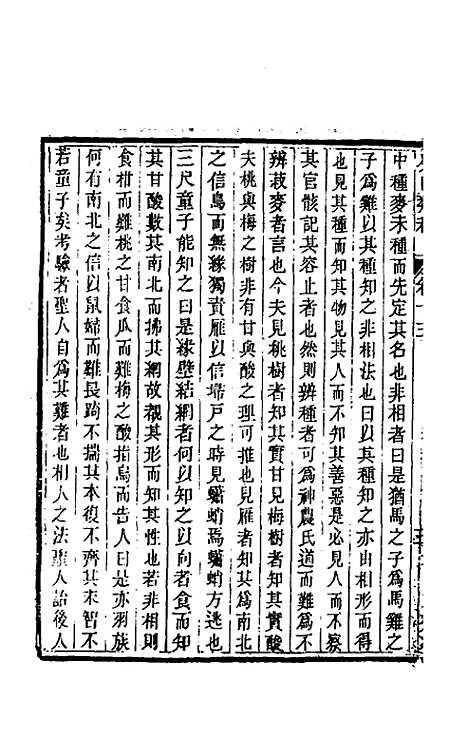 中種麥未種而先定其名也非相者曰是猶馬之子爲馬雞之
子爲雞以其種知之非相法也以其種知之亦由相形而得
也見其種而知其物見其人而不知其善惡是必見人而不察
其官骸記其容止者也然則辨種者可爲神農氏道而難爲不
辨菽麥者言也今夫見桃樹者知其實甘見梅樹者知其實酸
夫桃與梅之樹非有甘與酸之理可推也見雁者知其爲南北
之信鳥而無緣獨責雁以信埽戶之時見蠨蛸焉蠨蛸方逃也
三尺童子能知之曰是緣壁結網者何以知之以向者食而知
其甘酸數其南北而拂其網故觀其形而知其性也若非相則
食柑而難桃之甘食瓜而難梅之酸指烏而告人曰是亦羽族
何有南北之信以鼠婦而難長踦不揣其本復不齊其末智不
若童子矣考驗者聖人自爲其難者也相人之法聖人詒後人